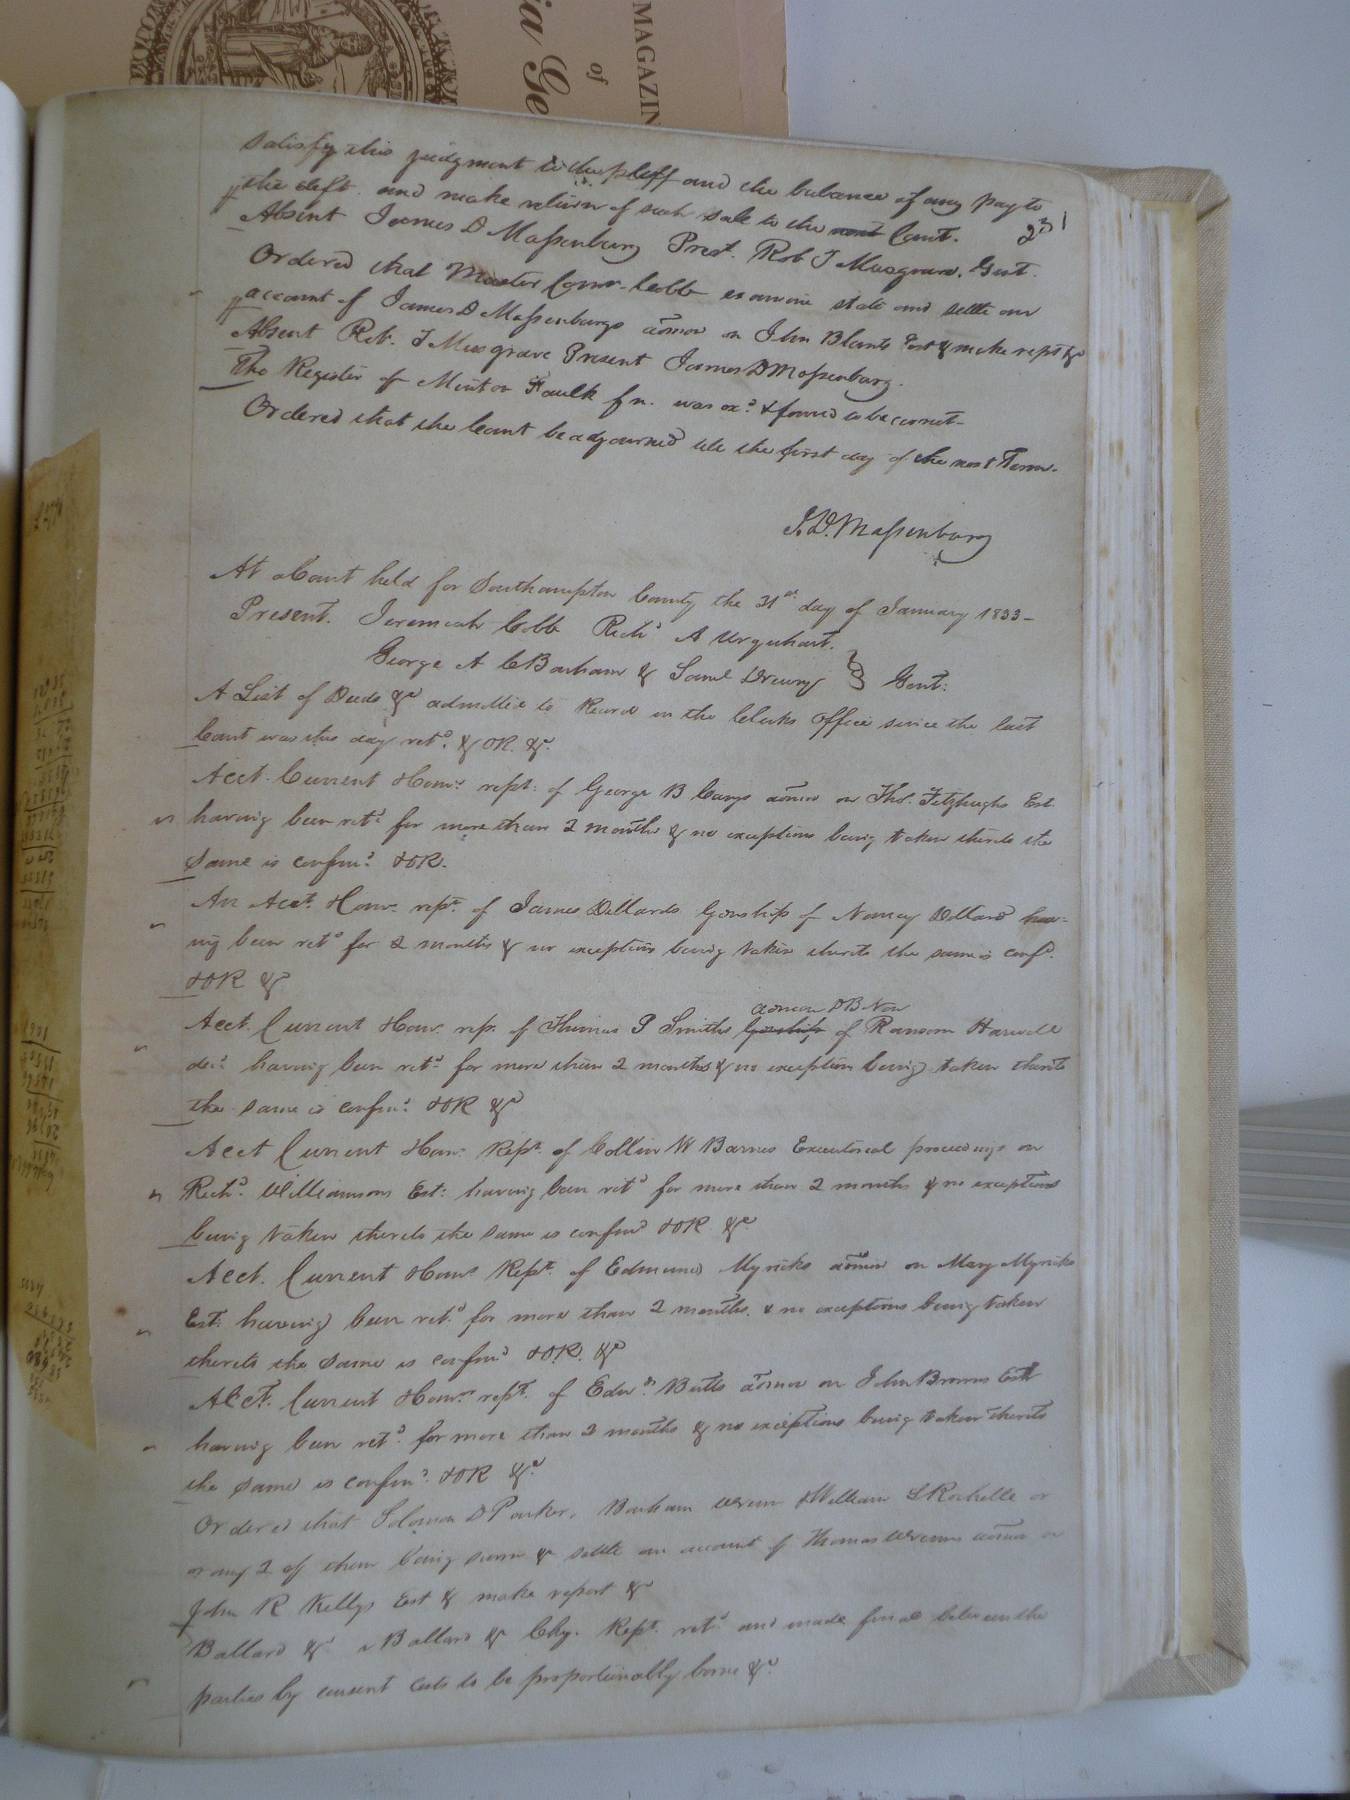 MAGAZIN
of
ia Ge
231
satisfy this judgment to the pltff and the balance if any pay to
the deft. and make return of such sale to the next Court.
Absent James D Massenburg Prest. Rob T Musgrave, Gent.
Ordered that Master Comr. Cobb examine state and settle an
account of James D Massenburgs admor on John Blunts Est & make rept &c
Absent Rob. T Musgrave Present James D Massenburg.
The Register of Minton Faulk fn. was exd. & found to be correct-
Ordered that the Court be adjourned till the first day of the next Term.
J. D. Massenburg
At a Court held for Southampton County the 31st day of January 1833-
Present. Jeremiah Cobb Richd A Urquhart.
George A C Barham & Saml Drewry } Gent:
A List of Deeds &c admitted to Record in the Clerks Office since the last
Court was this day retd. & OR. &c.
Acct. Current & Comrs rept: of George B Carys admor on Thos. Fitzhughs Est
having been retd for more than 2 months & no exceptions being taken thereto the
same is confmd. & OR.
An Acct. & Comr. rept. of James Dillards Gdnship of Nancy Dillard hav-
ing been retd for 2 months & no exceptions being taken thereto the same is confd.
& OR &c
admor DB Non
Acct. Current & Comr. rep. of Thomas P Smiths Gdnship of Ransom Harwell
decd. having been retd. for more than 2 months & no exception being taken thereto
the same is confmd. & OR &c
Acct Current & Comr. Rept. of Collin W Barnes Executorial proceedings on
Richd. Williamsons Est: having been retd for more than 2 months & no exceptions
being taken thereto the same is confmd & OR &c.
Acct. Current & Comrs Rept. of Edmund Myricks admor on Mary Myricks
Est: having been retd for more than 2 months. & no exceptions being taken
thereto the same is confmd & OR. &c
Acct. Current & Comrs rept. of Edwds. Butts admor on John Browns Est
having been retd. for more than 2 months & no exceptions being taken thereto
the same is confmd. & OR &c.
Ordered that Solomon D Parker, Barham Wrenn & William L Rochelle or
or any 2 of them being sworn & settle an account of Thomas Wrenns admor on
John R Kellys Est & make report &c
Ballard &c v Ballard & Chy. Rept. retd and made final between the
parties by consent costs to be proportionably borne &c.